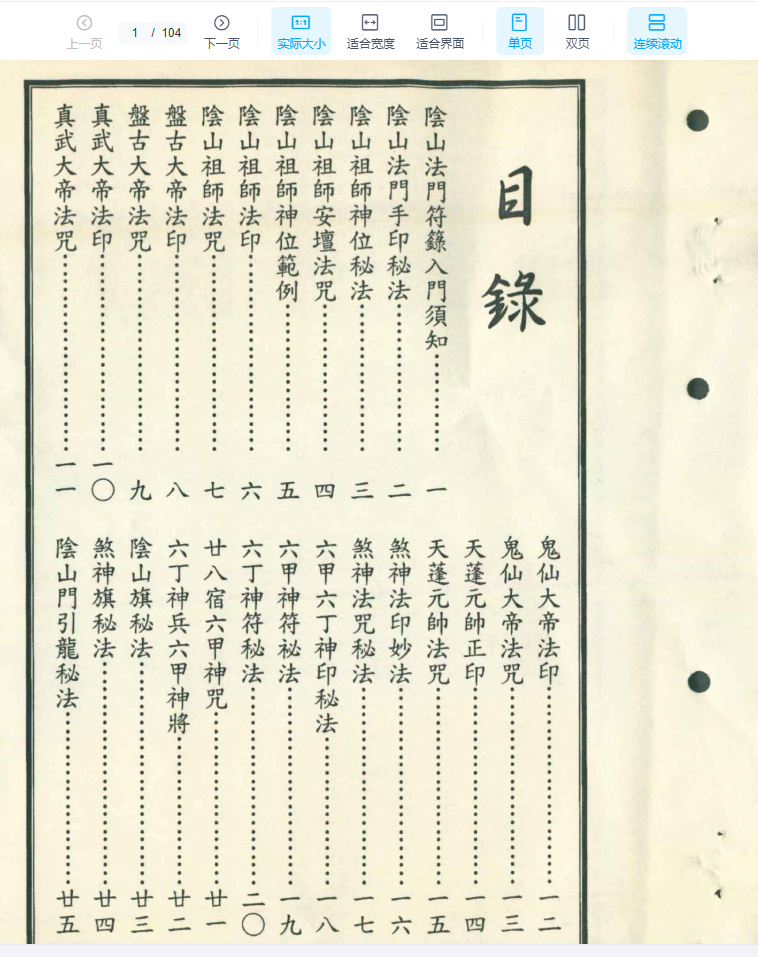 上一页
1 / 104
下一页
实际大小
适合宽度
适合界面
单页
双页
连续滚动
目錄
陰山法門符籙入門須知…………一
陰山法門手印秘法…………二
陰山祖師神位秘法…………三
陰山祖師安壇法咒…………四
陰山祖師神位範例…………五
陰山祖師法印…………六
陰山祖師法咒…………七
盤古大帝法印…………八
盤古大帝法咒…………九
真武大帝法印…………一〇
真武大帝法咒…………一一
鬼仙大帝法印…………一二
鬼仙大帝法咒…………一三
天蓬元帥正印…………一四
天蓬元帥法咒…………一五
煞神法印妙法…………一六
煞神法咒秘法…………一七
六甲六丁神印秘法…………一八
六甲神符祕法…………一九
六丁神符秘法…………二〇
廿八宿六甲神咒…………廿一
六丁神兵六甲神將…………廿二
陰山旗秘法…………廿三
煞神旗秘法…………廿四
陰山門引龍秘法…………廿五